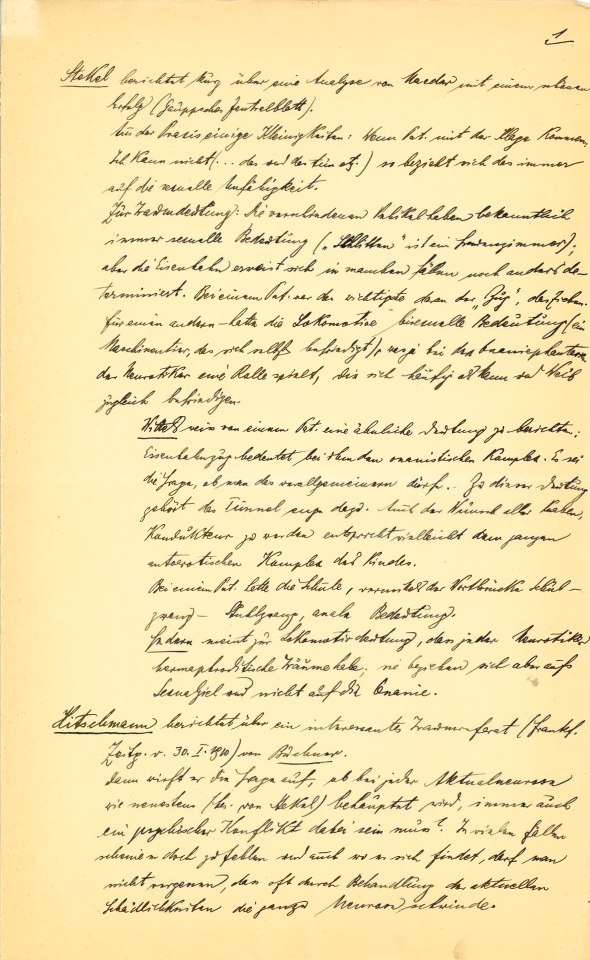 1
Stekel berichtet kurz über eine Analyse von Maeder mit einem schönen
Erfolg (Gauppsches Zentralblatt).
Aus der Praxis einige Kleinigkeiten: Wenn Pat. mit der Klage kommen:
Ich kann nicht (... das und das tun etc.) so bezieht sich das immer
auf die sexuelle Unfähigkeit.
Zur Traumdeutung: Die verschiedenen Vehikel haben bekanntlich
immer sexuelle Bedeutung („Schlitten" ist ein Frauenzimmer);
aber die Eisenbahn erweist sich in manchen Fällen noch anders de-
terminiert. Bei einem Pat. war das wichtigste daran der „Zug", das Ziehen.
Für einen andern – hatte die Lokomotive bisexuelle Bedeutung (ein
Maschinentier, das sich selbst befriedigt), was ja bei den Onaniephantasien
der Neurotiker eine Rolle spielt, die sich häufig als Mann und Weib
zugleich befriedigen.
Wittels weiss von einem Pat. eine ähnliche Deutung zu berichten:
Eisenbahnzug bedeutet bei ihm den onanistischen Komplex. Es sei
die Frage, ob man das verallgemeinern dürf. Zu dieser Deutung
gehört der Tunnel dazu. Auch der Wunsch aller Knaben,
Kondukteur zu werden entspricht vielleicht dem ganzen
autoerotischen Komplex des Kindes.
Bei einem Pat. hatte die Schule, vermittels der Wortbrücke Schul-
zwang – Stuhlzwang, anale Bedeutung.
Federn meint zur Lokomotivdeutung, dass jeder Neurotiker
hermaphroditische Träume habe; sie beziehen sich aber aufs
Sexualziel und nicht auf die Onanie.
Hitschmann berichtet über ein interessantes Traumreferat (Frankf.
Zeitg. v. 30. I. 1910) von Büchner.
dann wirft er die Frage auf, ob bei jeder Aktualneurose
wie neuestens (bes. von Stekel) behauptet wird, immer auch
ein psychischer Konflikt dabei sein muss? In vielen Fällen
scheine er doch zu fehlen und auch wo er sich findet, darf man
nicht vergessen, dass oft durch Behandlung der aktuellen
Schädlichkeiten die ganze Neurose schwinde.